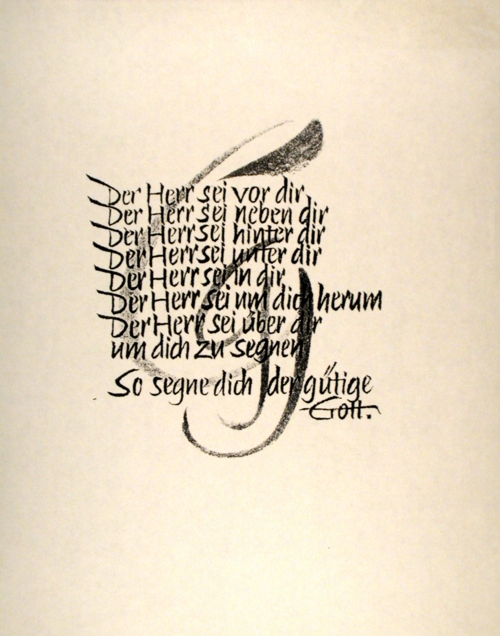 Der Herr sei vor dir
Der Herr sei neben dir
Der Herr sei hinter dir
Der Herr sei unter dir
Der Herr sei in dir
Der Herr sei um dich herum
Der Herr sei über dir
um dich zu segnen
So segne dich der gütige
Gott.